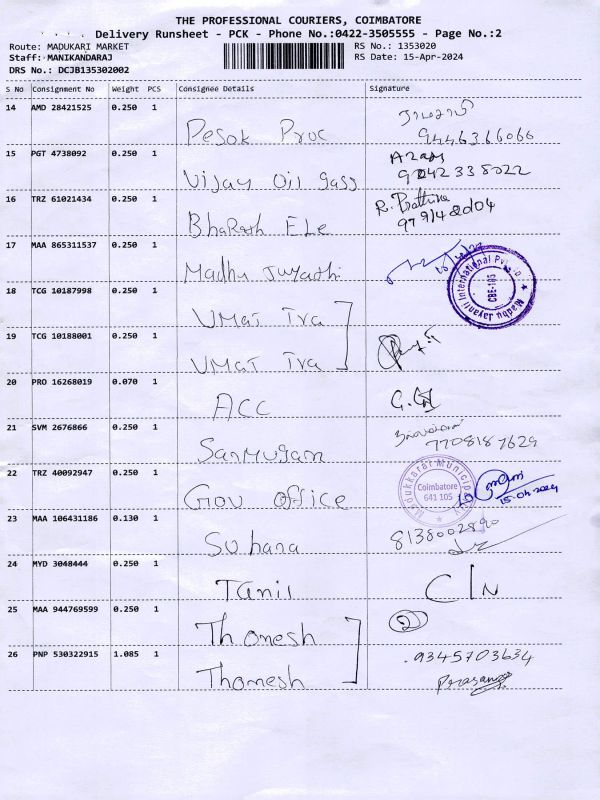 THE PROFESSIONAL COURIERS, COIMBATORE
Delivery Runsheet - PCK - Phone No.:0422-3505555 - Page No.:2
Route: MADUKARI MARKET
RS No.: 1353020
Staff: MANIKANDARAJ
RS Date: 15-Apr-2024
DRS No.: DCJB135302002
S No Consignment No Weight PCS Consignee Details Signature
14 AMD 28421525 0.250 1
Pesok Proc
9446366066
15 PGT 4738092 0.250 1
Vijay Oil gass
9042338022
16 TRZ 61021434 0.250 1
BhaRath ELe
R. Prathiba
17 MAA 865311537 0.250 1
Madhu Juyathi
Madhu Jayanti International Pvt
CBE-105
18 TCG 10187998 0.250 1
UMaT Tra
19 TCG 10188001 0.250 1
UMaT Tra
20 PRO 16268019 0.070 1
ACC
21 SVM 2676866 0.250 1
SanMugam
7708187629
22 TRZ 40092947 0.250 1
Gov office
Madukkarai Municipality
Coimbatore
641 105
15-04-2024
23 MAA 106431186 0.130 1
Suhana
8138002890
24 MYD 3048444 0.250 1
Tanil
25 MAA 944769599 0.250 1
Thomesh
2
26 PNP 530322915 1.085 1
Thomesh
9345703634